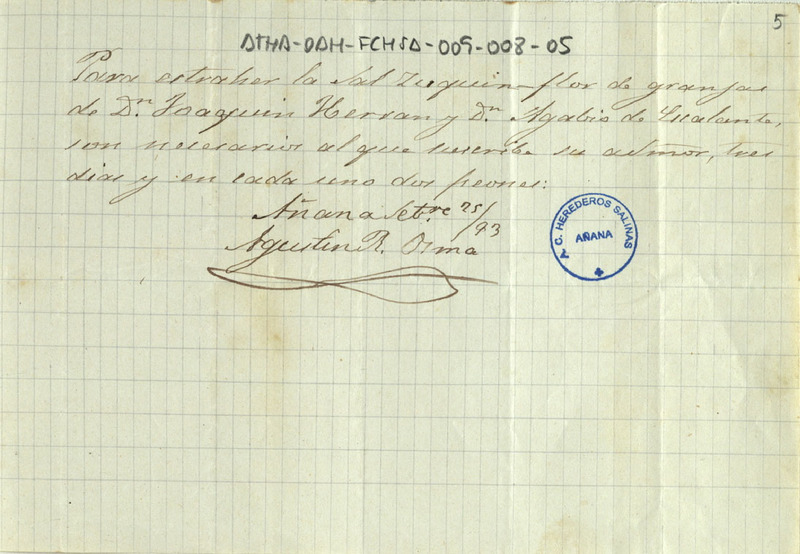 5
ATHA-DAH-FCHSA-009-008-05
Para estraher la Sal Zuquin-flor de granjas
de Dn. Joaquin Herran y Dn. Agabio de Escalante,
son necesarios al que suscribe su admor, tres
dias y en cada uno dos peones:
Añana Set.re 25/93
Agustin R. Osma
A. C. HEREDEROS SALINAS
AÑANA